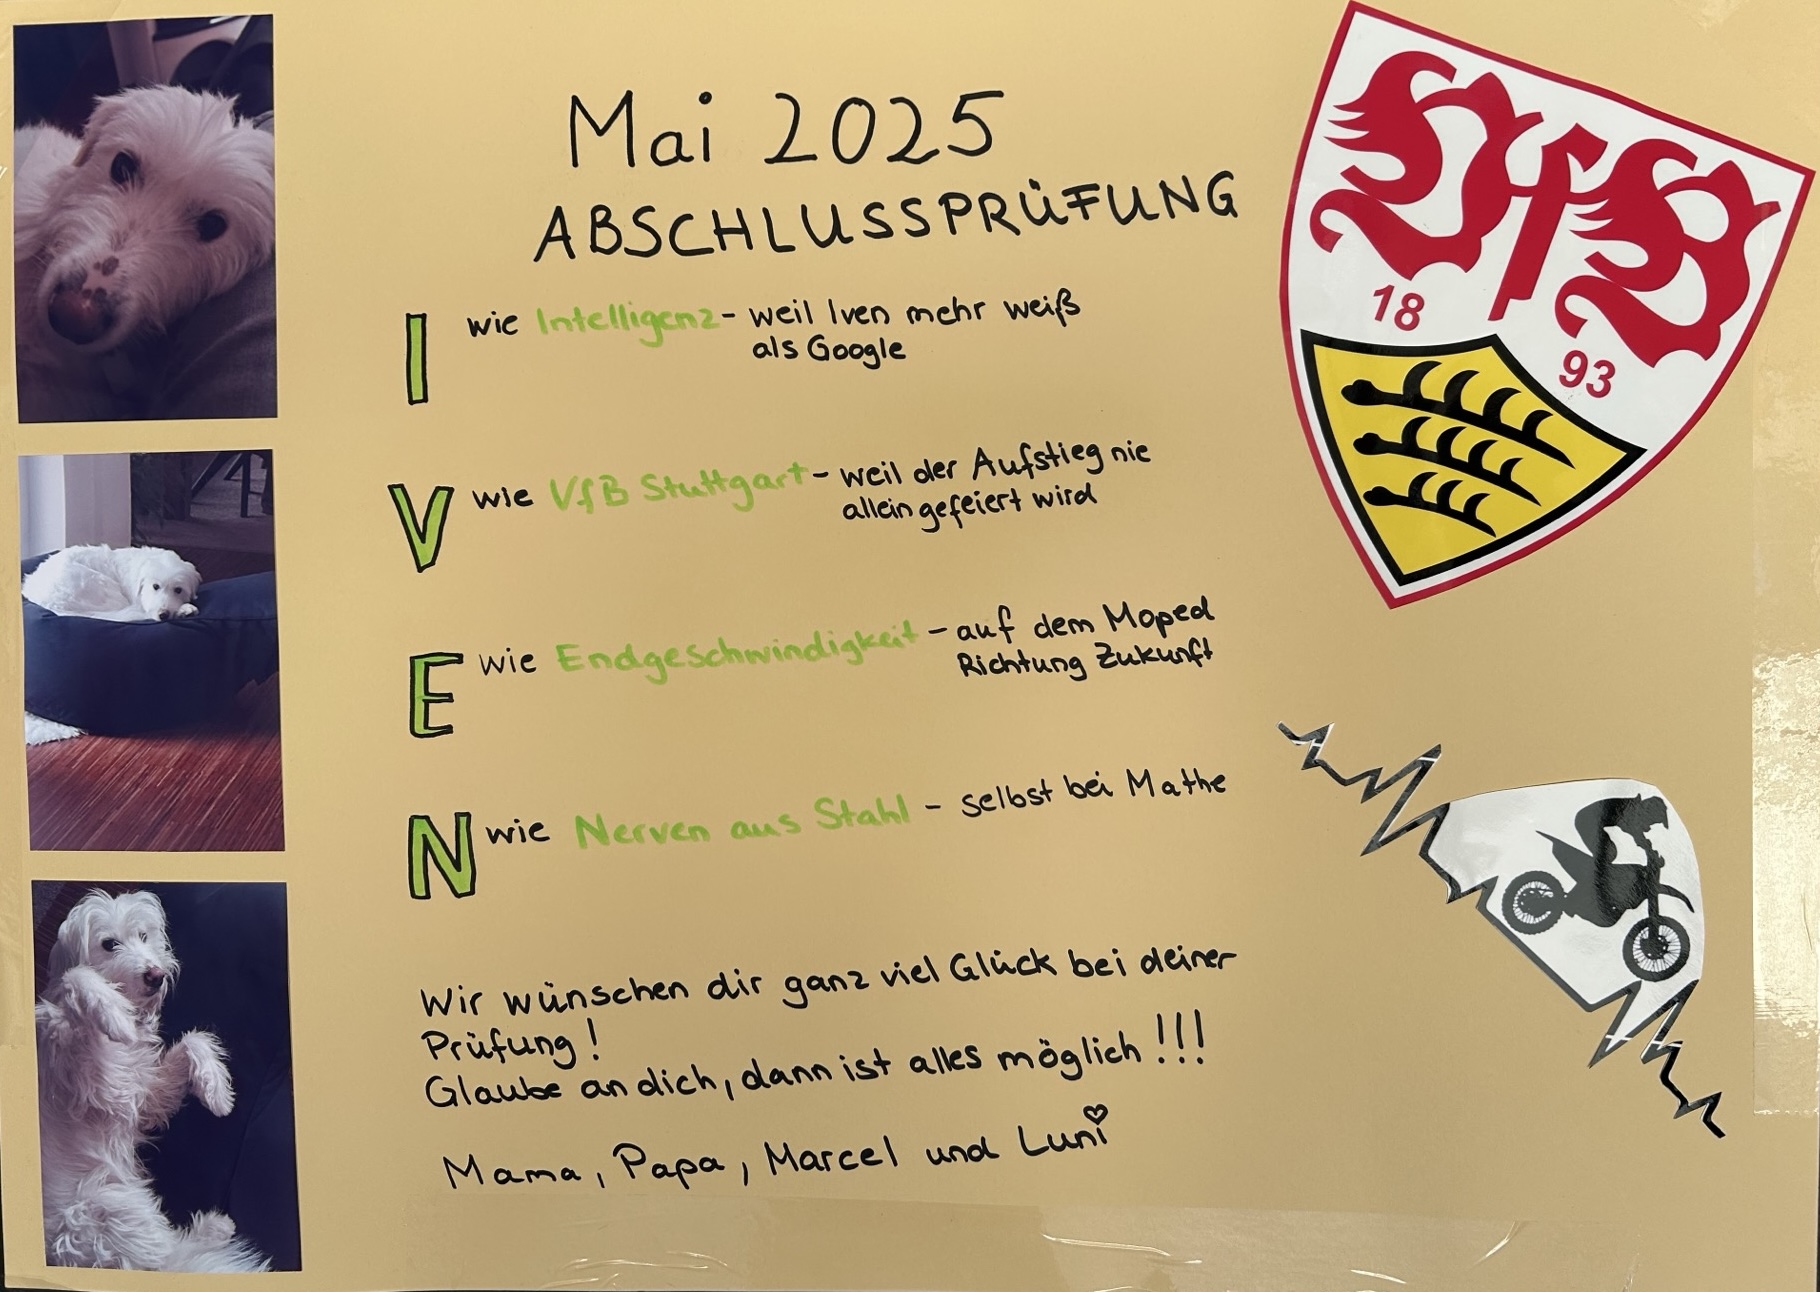 Mai 2025
ABSCHLUSSPRÜFUNG
I wie Intelligenz - weil Iven mehr weiß
als Google
V wie VfB Stuttgart - weil der Aufstieg nie
allein gefeiert wird
E wie Endgeschwindigkeit - auf dem Moped
Richtung Zukunft
N wie Nerven aus Stahl - selbst bei Mathe
Wir wünschen dir ganz viel Glück bei deiner
Prüfung!
Glaube an dich, dann ist alles möglich!!!
Mama, Papa, Marcel und Luni
VfB
18
93